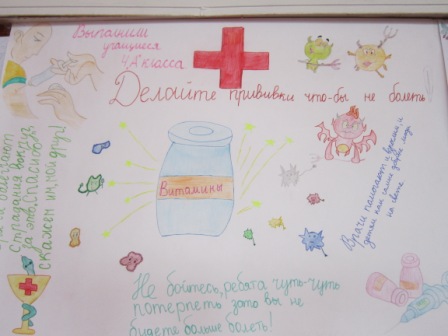 Выполнили
учащиеся
4 "А" класса
Делайте прививки что-бы не болеть!
Витамины
облегчают
Страдания вокруг
за это, спасибо
скажем им, мой друг!
Врачи помогают и взрослым, и
детям
самые добрые люди
на свете
Не бойтесь, ребята чуть-чуть
потерпеть зато вы не
будете больше болеть!